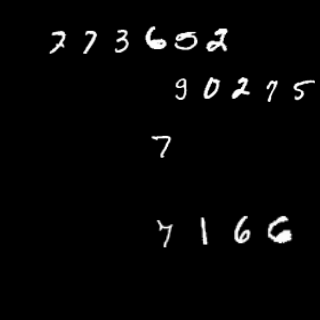 773602
90275
7
7166